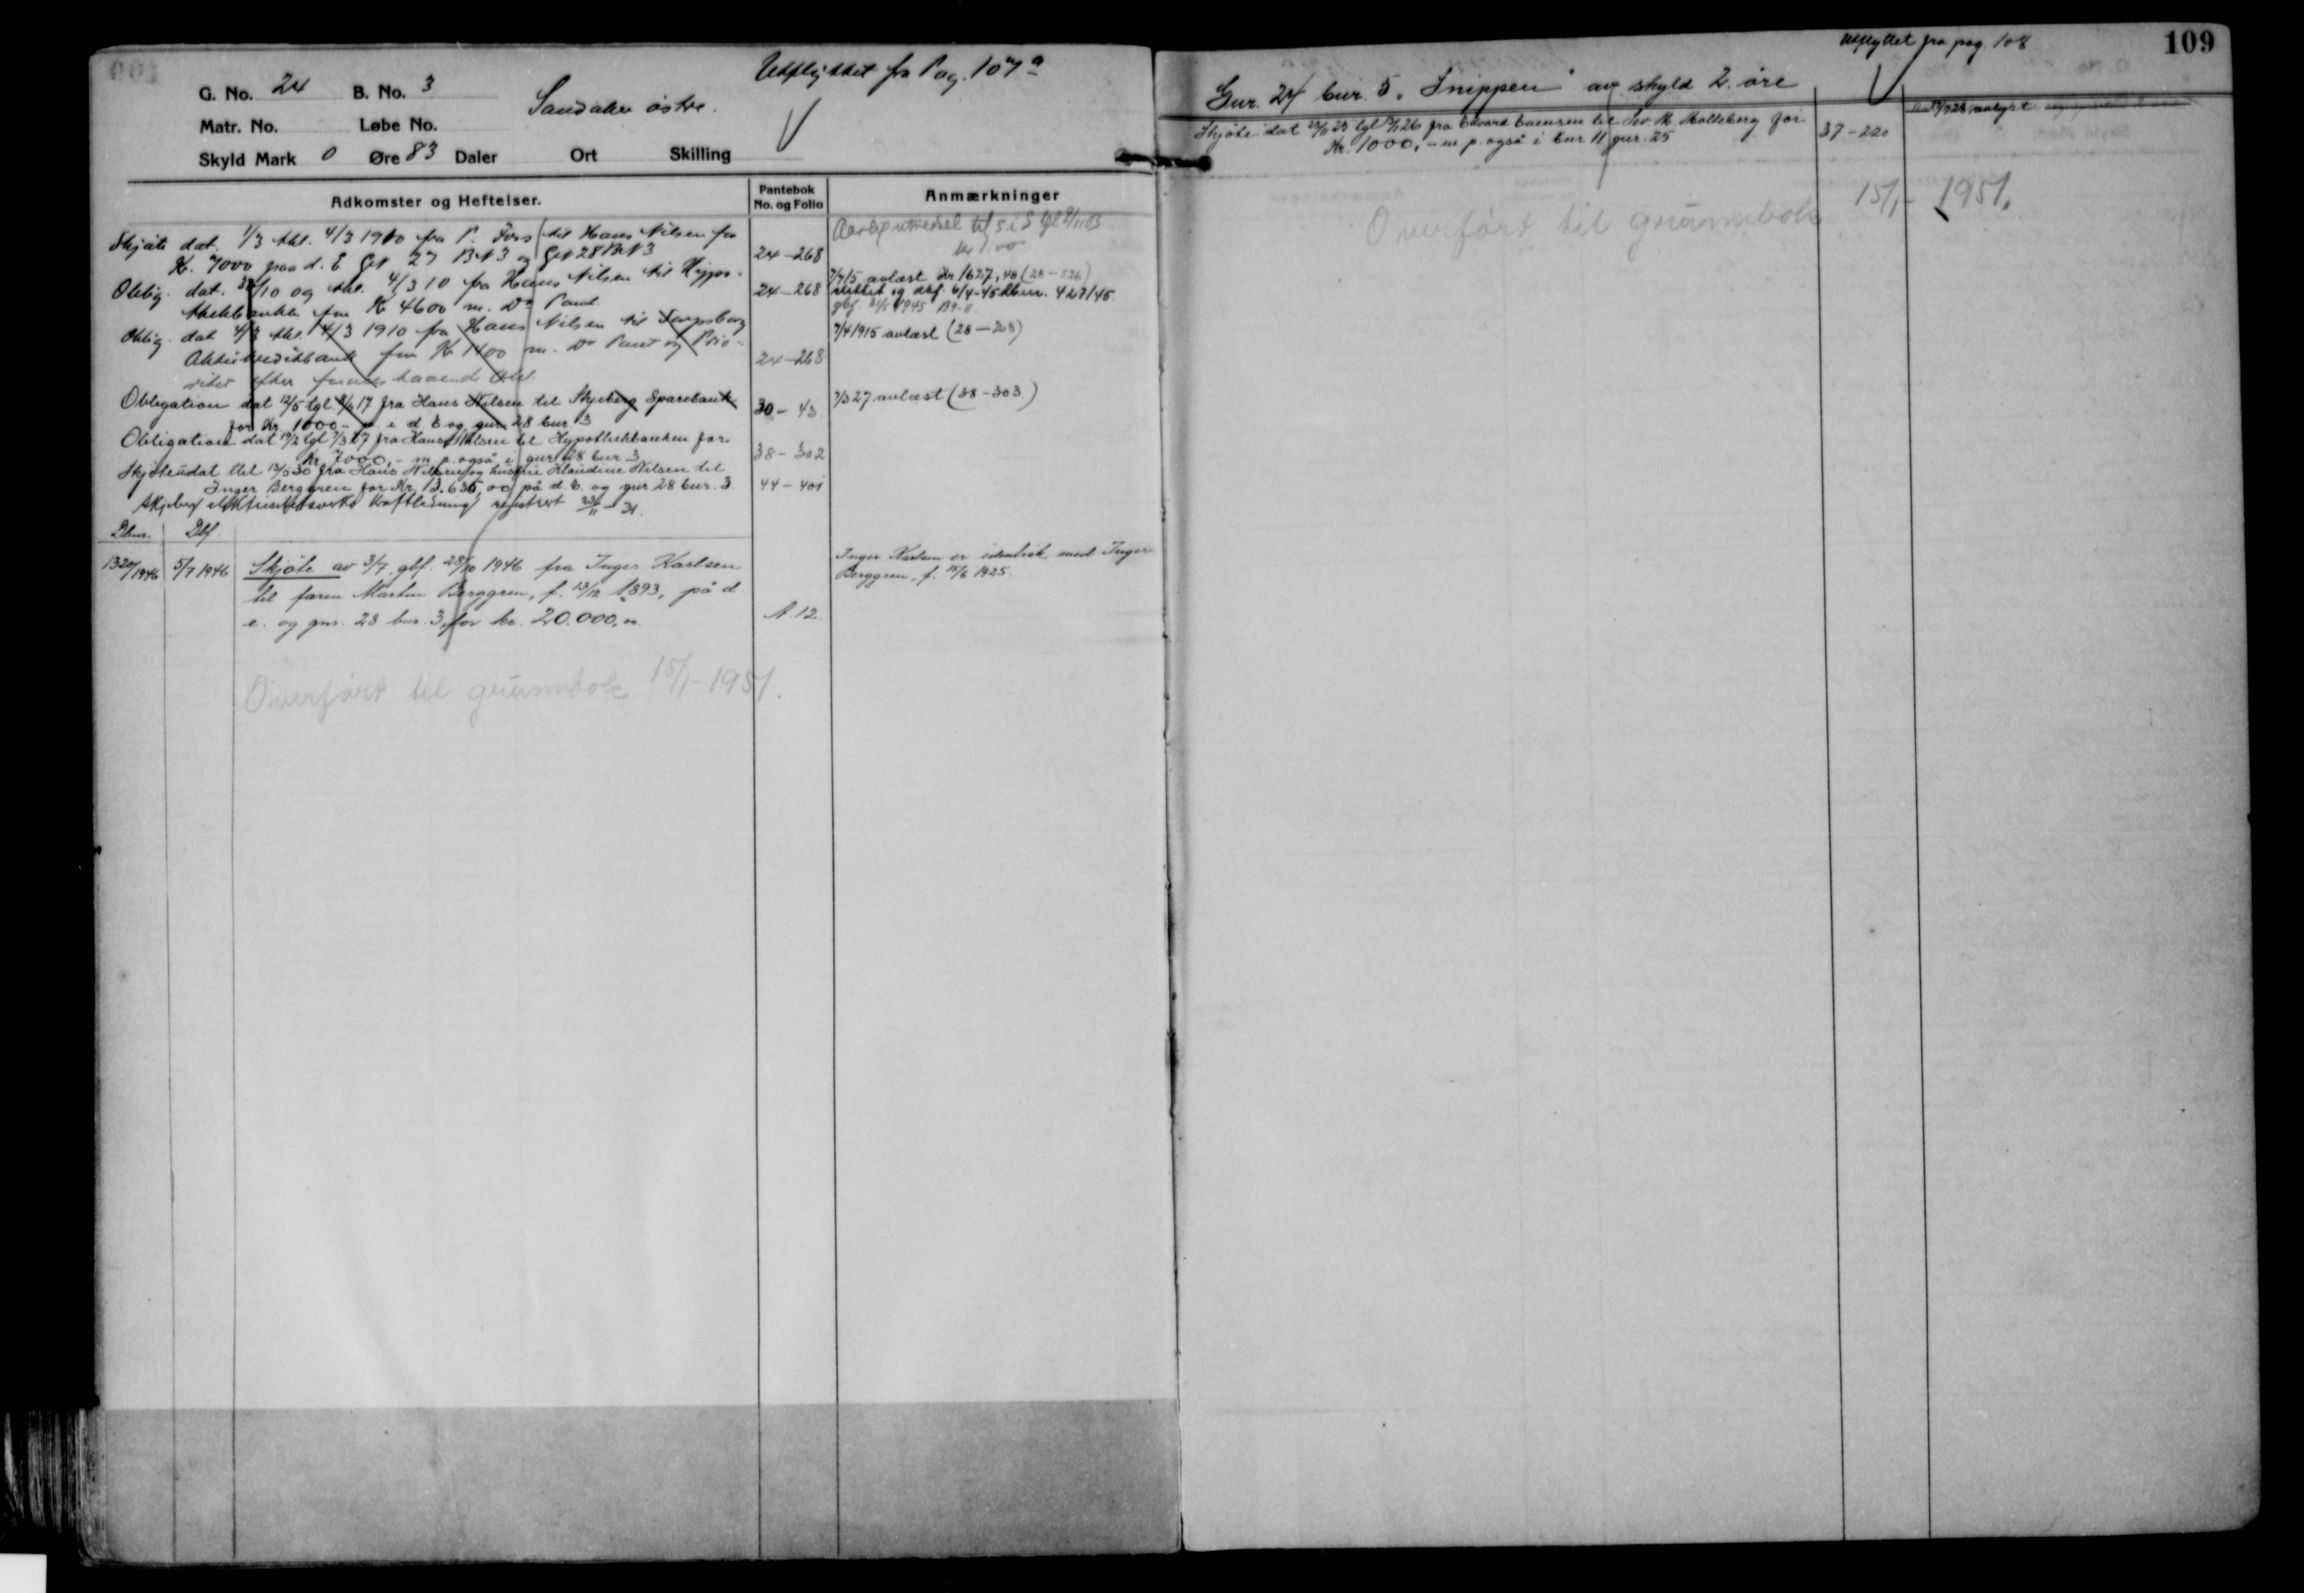 Udflyttet fra Pag. 107ª
G. No. 24 B. No. 3
Sandaker østre.
Matr. No. Løbe No.
Skyld Mark 0 Øre 83 Daler Ort Skilling
Adkomster og Heftelser. Pantebok No. og Folio Anmærkninger
Skjøte dat. 1/3 thl. 4/3 1910 fra P. Foss til Hans Nilsen for
Kr. 7000 paa d. E GN 27 BN 3 og GN 28 BN 3 24-268
Oblig. dat. /10 og thl. 4/3 10 fra Hans Nilsen til Hypo-
thekbanken for Kr 4600 m. Do Pant. 24-268
Oblig. dat 4/3 thl. 4/3 1910 fra Hans Nilsen til Sarpsborg
Aktiekreditbank for Kr 1400 m. Do Pant og Prio-
ritet efter foranstaaende Obl. 24-268
Obligation dat 12/5 tgl 17 fra Hans Nilsen til Skjeberg Sparebank
for Kr. 1000.- p. i d. E og gnr. 28 bnr. 3 30-43
Obligation dat 17/2 tgl 7/3 27 fra Hans Nilsen til Hypothekbanken for
Kr. 7000,- m. p. også i gnr. 28 bnr. 3 38-302
Skjøte udat ttel 13/5 30 fra Hans Nilsen og hustru Klaudine Nilsen til
Inger Berggren for Kr. 13.635,00 på d. E. og gnr. 28 bnr. 3 44-401
Skjeberg elektrisitetsverks kraftledning registrert 11 - 31.
Aarlig utredsel til 5 i S tgl 9/11 03
kr 1.00
7/7 15 avlæst Kr 1627,48 (28-526)
slettet og dkf. 6/4-45 dbnr. 427/45.
gbf. 1945 B9.11.
7/4 1915 avlæst (28-268)
7/3 27 avlæst (38-303)
Dbnr. Dbf.
1320/1946 5/7 1946 Skjøte av 3/7, gbf. 28/10 1946 fra Inger Karlsen
til faren Martin Berggren, f. 13/12 1893, på d.
e. og gnr. 28 bnr. 3, for kr. 20.000,00. A.12.
Inger Karlsen er identisk med Inger
Berggren, f. 15/6 1925.
Overført til grunnbok 15/1-1951.
Utflyttet fra pag. 108
109
Gnr. 24 bnr. 5 "Snippen" av skyld 2 øre
Skjøte dat 25 tgl 26 fra Edvard til M. Molteberg for
Kr. 1000,- m p. også i bnr 11 gnr. 25 37-220
avlyst
Overført til grunnbok 15/1- 1951.